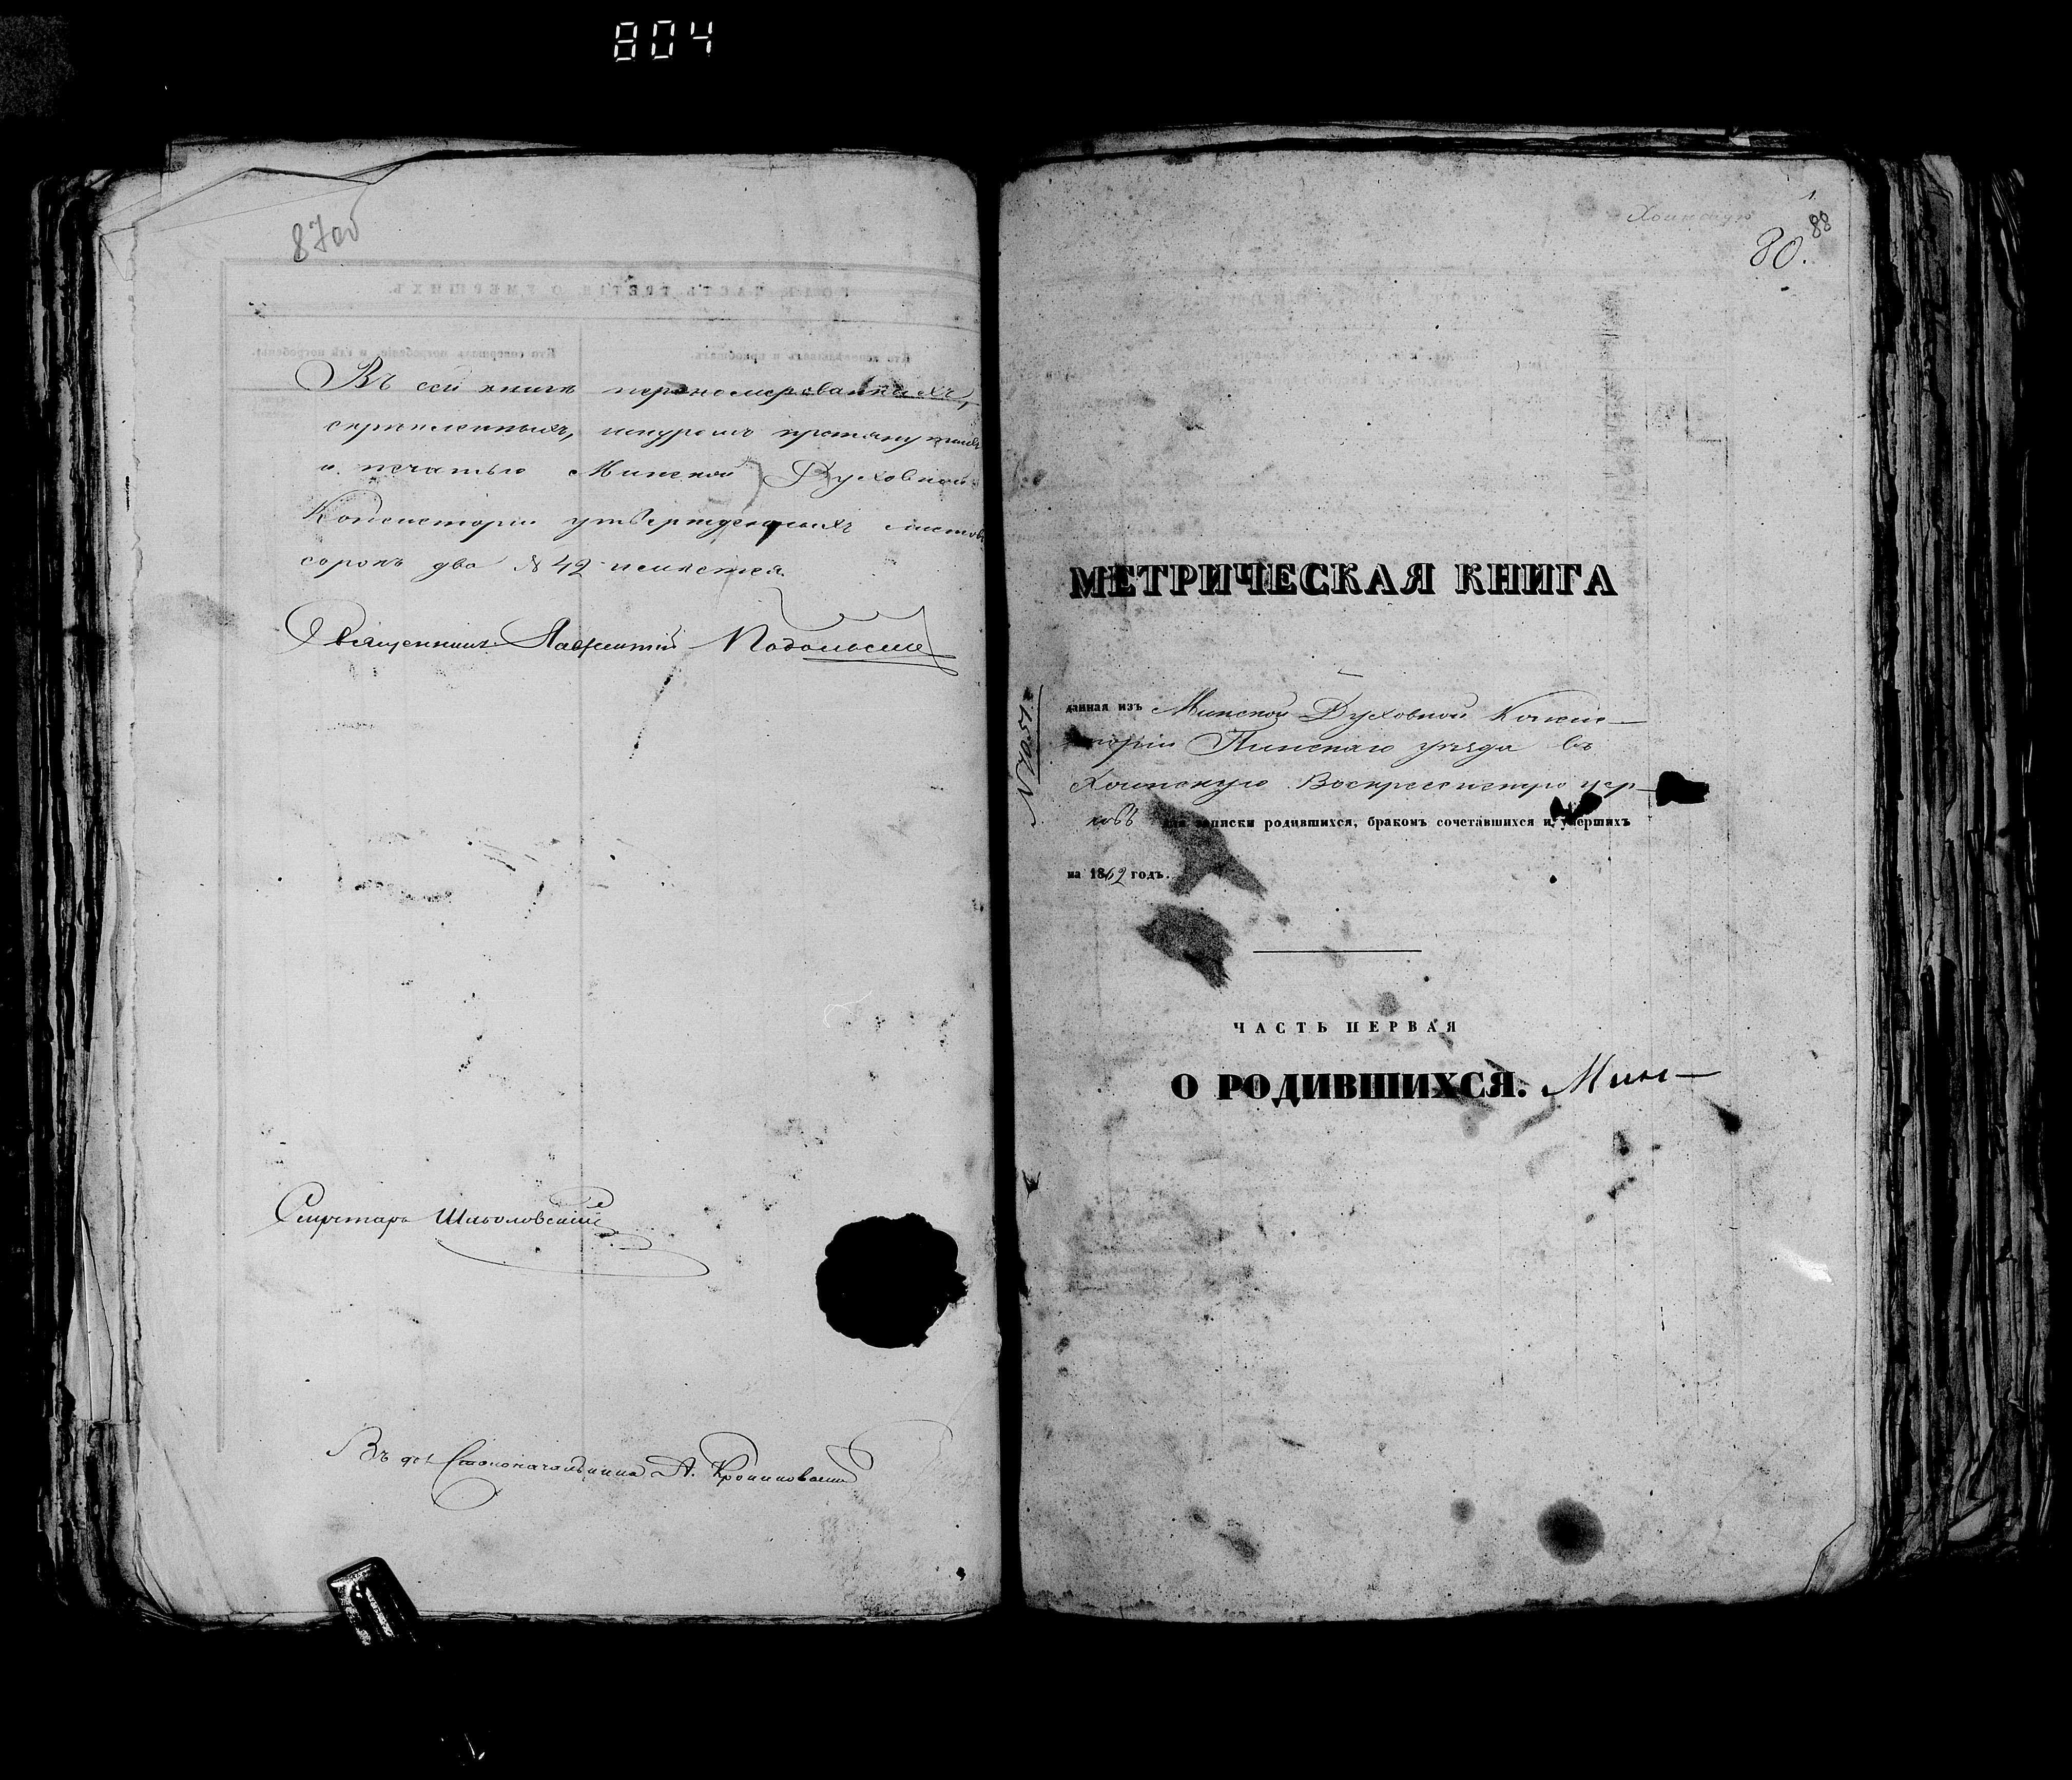 804
87об
Въ сей книгѣ перономерованныхъ,
скрепленныхъ, шнуромъ протянутыхъ
и печатью Минской Духовной
Консисторіи утвержденныхъ листовъ
сорокъ два № 42 имѣется.
Священникъ Лаврентій Подольскій
Секретарь Школовскій
Въ дол. Столоначальника А.
Хоинскую
1.
88
80.
МЕТРИЧЕСКАЯ КНИГА
№ 7051.
данная изъ Минской Духовной Консис-
торіи Пинскаго уѣзда въ
Хоинскую Воскресенскую цер-
ковь для записки родившихся, бракомъ сочетавшихся и умершихъ
на 1862 годъ.
ЧАСТЬ ПЕРВАЯ
О РОДИВШИХСЯ. Мин-